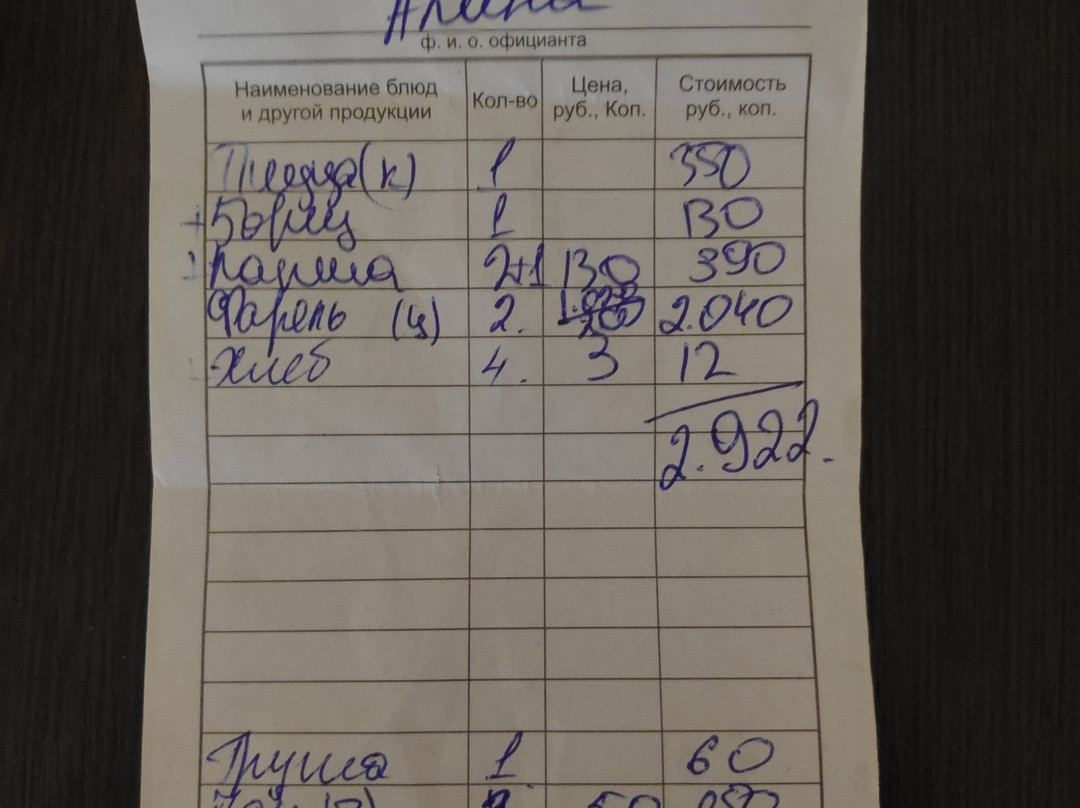 Алина
ф. и. о. официанта
Наименование блюд и другой продукции Кол-во Цена, руб., Коп. Стоимость руб., коп.
Пицца (к) 1 350
+ Борщ 1 130
Лапша 2+1 130 390
Фарель (ц) 2. 2.040
Хлеб 4. 3 12
2.922.
Груша 1 60